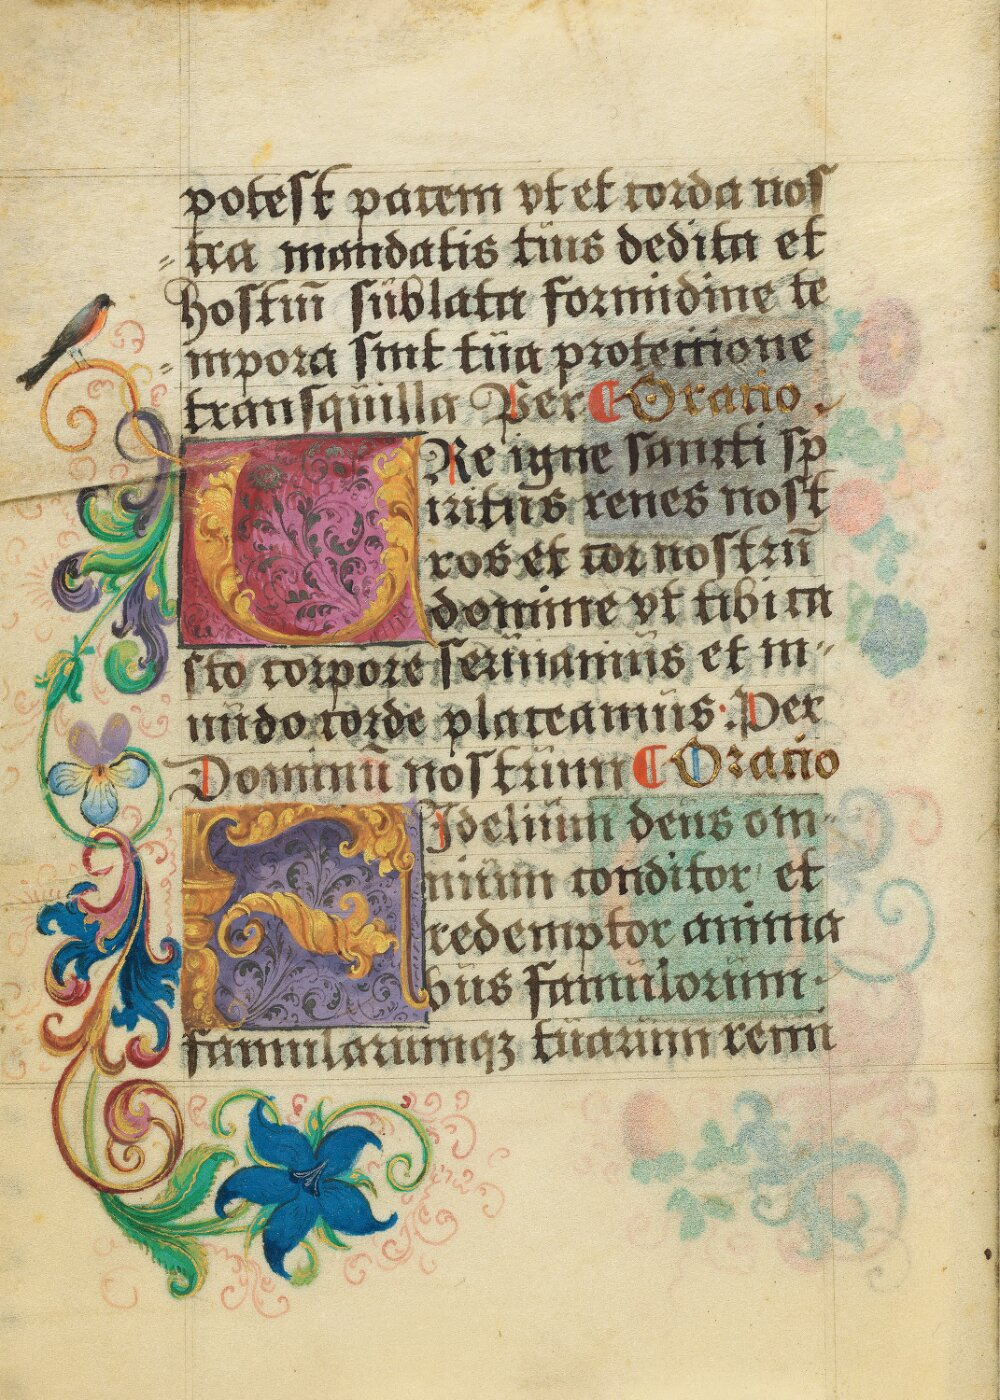 potest pacem vt et corda nos
tra mandatis tuis dedita et
hostiū sublata formidine te
mpora sint tua protectione
tranquilla Per Oratio
URe igne sancti sp
iritus renes nost
ros et cor nostrū
domine vt tibi ca
sto corpore seruiamus et m
undo corde placeamus. Per
Dominū nostrum Oratio
FIdelium deus om
nium conditor et
redemptor anima
bus famulorum
famularumqȝ tuarum remi